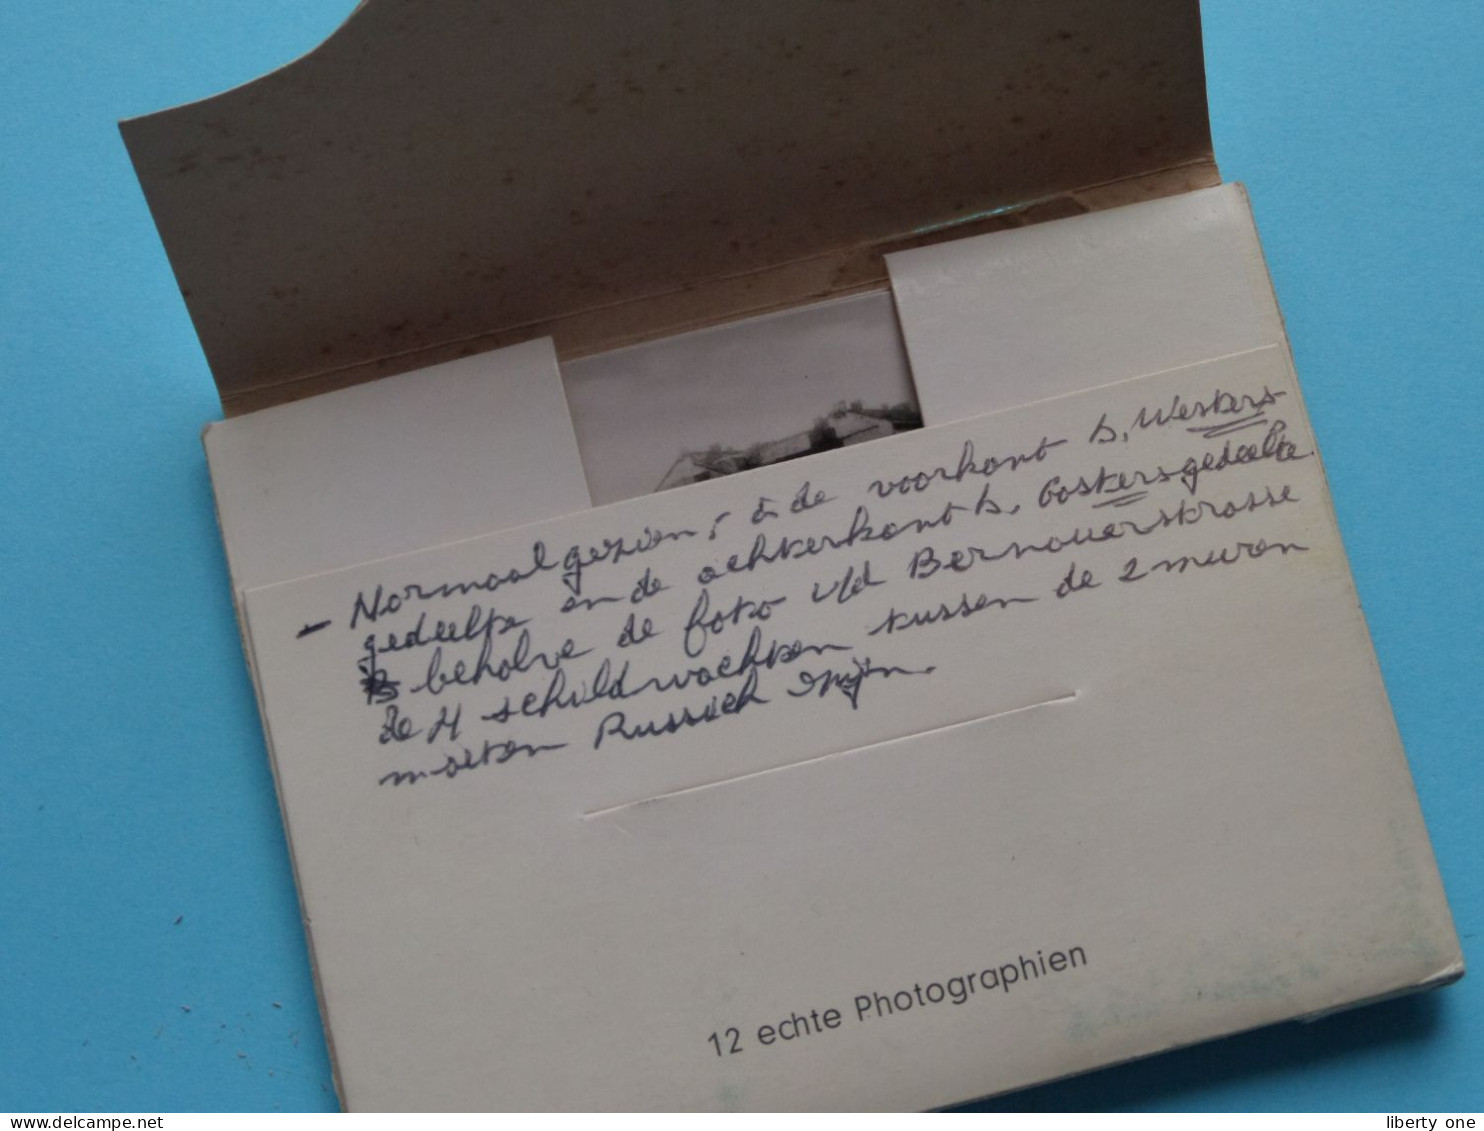 - Normaal gezien, is de voorkant b, Westers-
gedeelte en de achterkant b, Oosters gedeelte.
behalve de foto v/d Bernauerstrasse
de 4 schildwachten tussen de 2 muren
moeten Russich zijn.
12 echte Photographien
liberty one